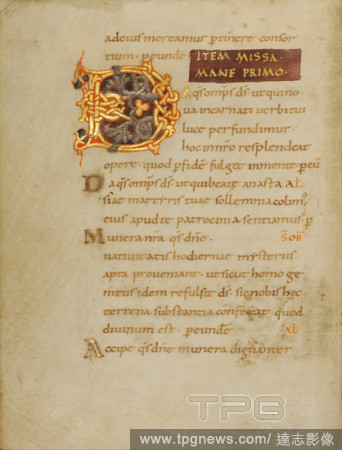 adeius mereamur pertinere consor
tium. peundē
ITEM MISSA
MANE PRIMO.
Da qs omps ds utquino
ua incarnati uerbi tui
luce perfundimur
hoc innro resplendeat
opere. quod pfidē fulget inmente. p
Da qs omps ds utquibeatę anasta AL
siae martyris tuae sollemnia colim
eius apudte patrocinia sentiamus. p
Munera nra qs dne SOB
natiuitatis hodiernae mysteriis
apta proueniant. ut sicut homo ge
nitus idem refulsit ds. sic nobis hec
terrena substantia conferat quod
diuinum est. peundē AL
Accipe qs dne munera dignanter
TPG
www.tpgnews.com / 達志影像